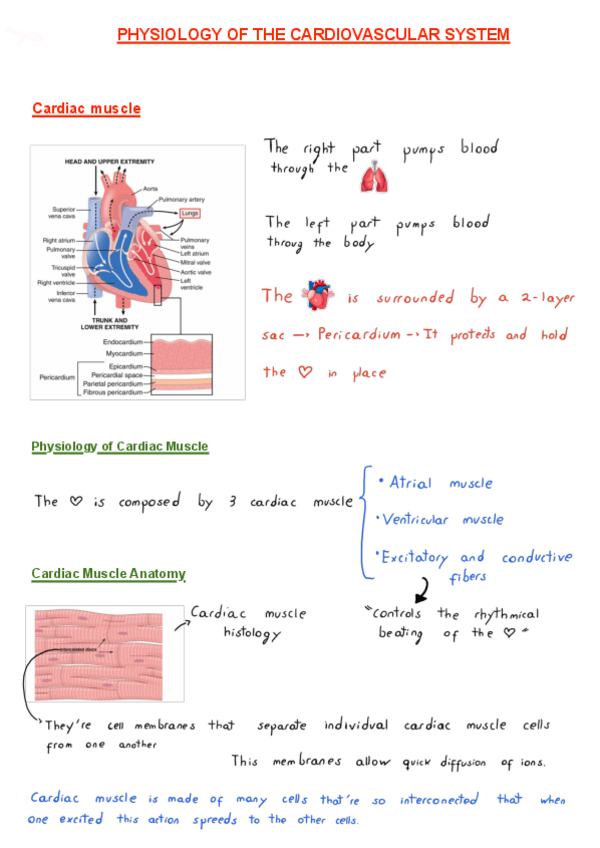 PHYSIOLOGY OF THE CARDIOVASCULAR SYSTEM
Cardiac muscle
HEAD AND UPPER EXTREMITY
Aorta
Pulmonary artery
Superior
vena cava
Lungs
Right atrium
Pulmonary
valve
Tricuspid
valve
Right ventricle
Inferior
vena cava
Pulmonary
veins
Left atrium
Mitral valve
Aortic valve
Left
ventricle
TRUNK AND
LOWER EXTREMITY
Endocardium
Myocardium
Epicardium
Pericardial space
Pericardium
Parietal pericardium
Fibrous pericardium
The right part pumps blood
through the
The left part pumps blood
throug the body
The is surrounded by a 2-layer
sac → Pericardium → It protects and hold
the ♡ in place
Physiology of Cardiac Muscle
The ♡ is composed by 3 cardiac muscle
• Atrial muscle
• Ventricular muscle
• Excitatory and conductive
fibers
"controls the rhythmical
beating of the ♡"
Cardiac Muscle Anatomy
Intercalated discs
Cardiac muscle
histology
They're cell membranes that separate individual cardiac muscle cells
from one another
This membranes allow quick diffusion of ions.
Cardiac muscle is made of many cells that're so interconected that when
one excited this action spreeds to the other cells.